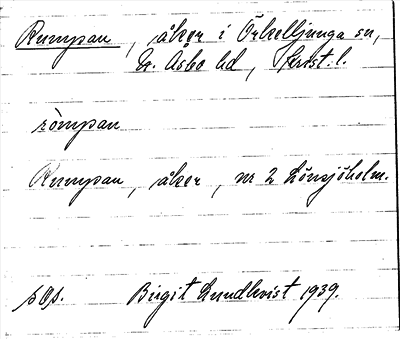 Rumpan, åker i Örkelljunga sn,
N. Åsbo hd, Krist. l.
römpan
Rumpan, åker, nr 2 Lönsjöholm.
Birgit Lundkvist 1939.